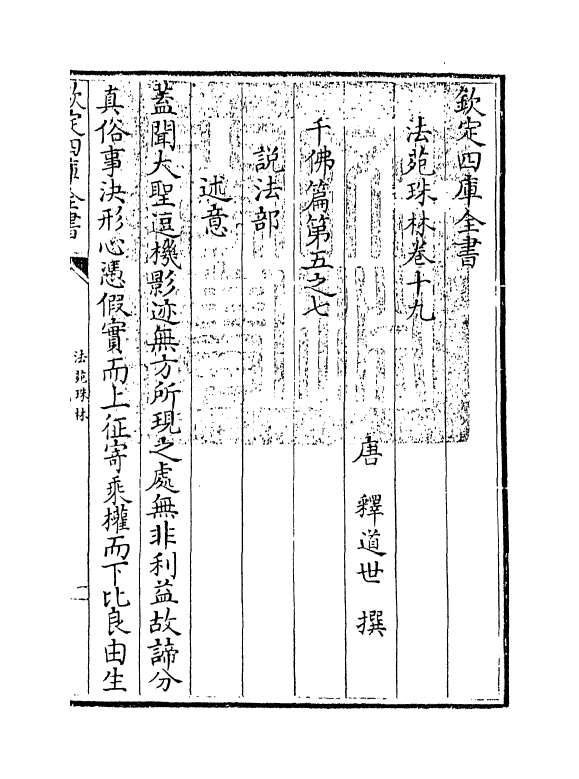 欽定四庫全書
法苑珠林卷十九
唐 釋道世 撰
千佛篇第五之七
說法部
述意
蓋聞大聖逗機影迹無方所現之處無非利益故諦分
真俗事決形心憑假實而上征寄乘權而下比良由生
欽定四庫全書
法苑珠林